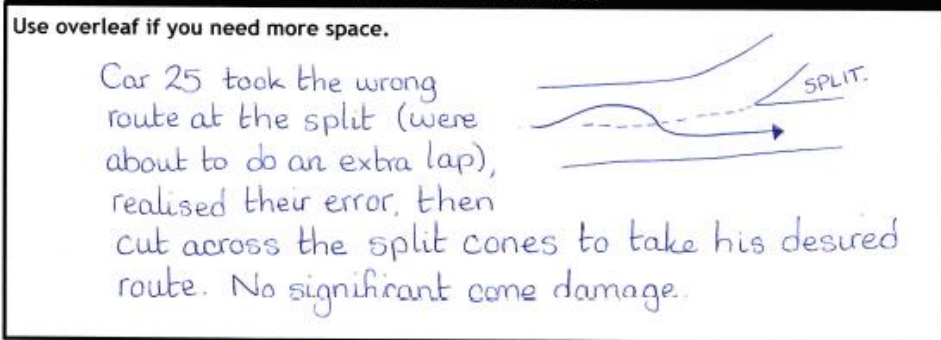 Use overleaf if you need more space.
Car 25 took the wrong
route at the split (were
about to do an extra lap),
realised their error, then
cut across the split cones to take his desired
route. No significant cone damage.
SPLIT.